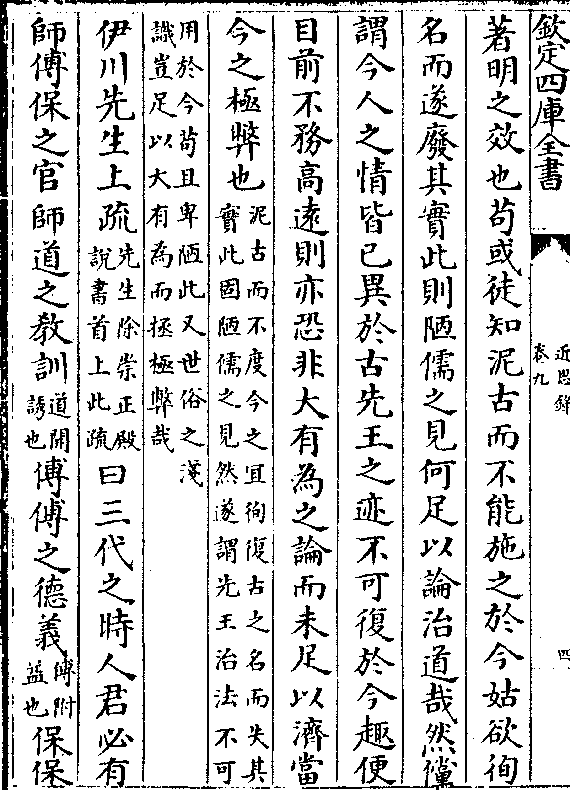 欽定四庫全書
近思錄
卷九
四
著明之效也苟或徒知泥古而不能施之於今姑欲徇
名而遂廢其實此則陋儒之見何足以論治道哉然儻
謂今人之情皆已異於古先王之迹不可復於今趣便
目前不務高遠則亦恐非大有為之論而未足以濟當
今之極弊也
泥古而不度今之宜徇復古之名而失其
實此固陋儒之見然遂謂先王治法不可
用於今苟且卑陋此又世俗之淺
識豈足以大有為而拯極弊哉
伊川先生上疏
先生除崇正殿
說書首上此疏
曰三代之時人君必有
師傅保之官師道之教訓
道開
誘也
傅傅之德義
傅附
益也
保保